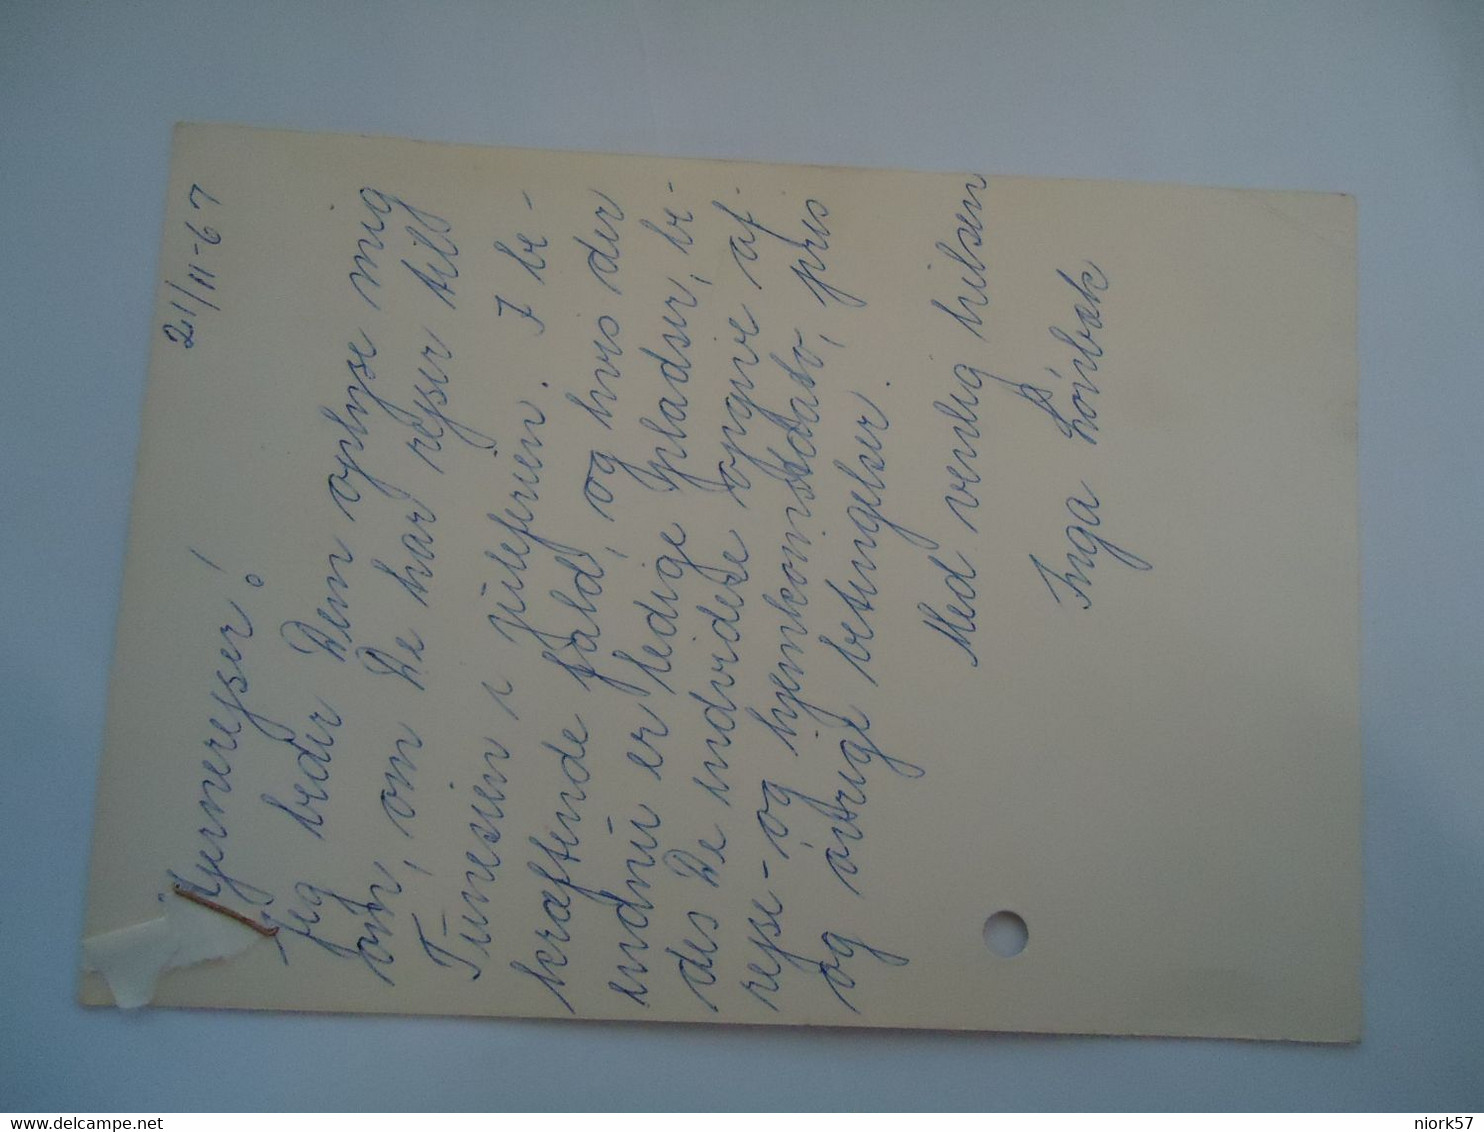 21/11-67
Stjernerejser!
Jeg beder Dem oplyse mig
om, om De har rejser til
Tunesien i juleferien. I be-
kræftende fald, og hvis der
endnu er ledige pladser, be-
des De endvidere opgive af-
rejse- og hjemkomstdato, pris
og øvrige betingelser.
Med venlig hilsen
Inga
delcampe.net
niork57